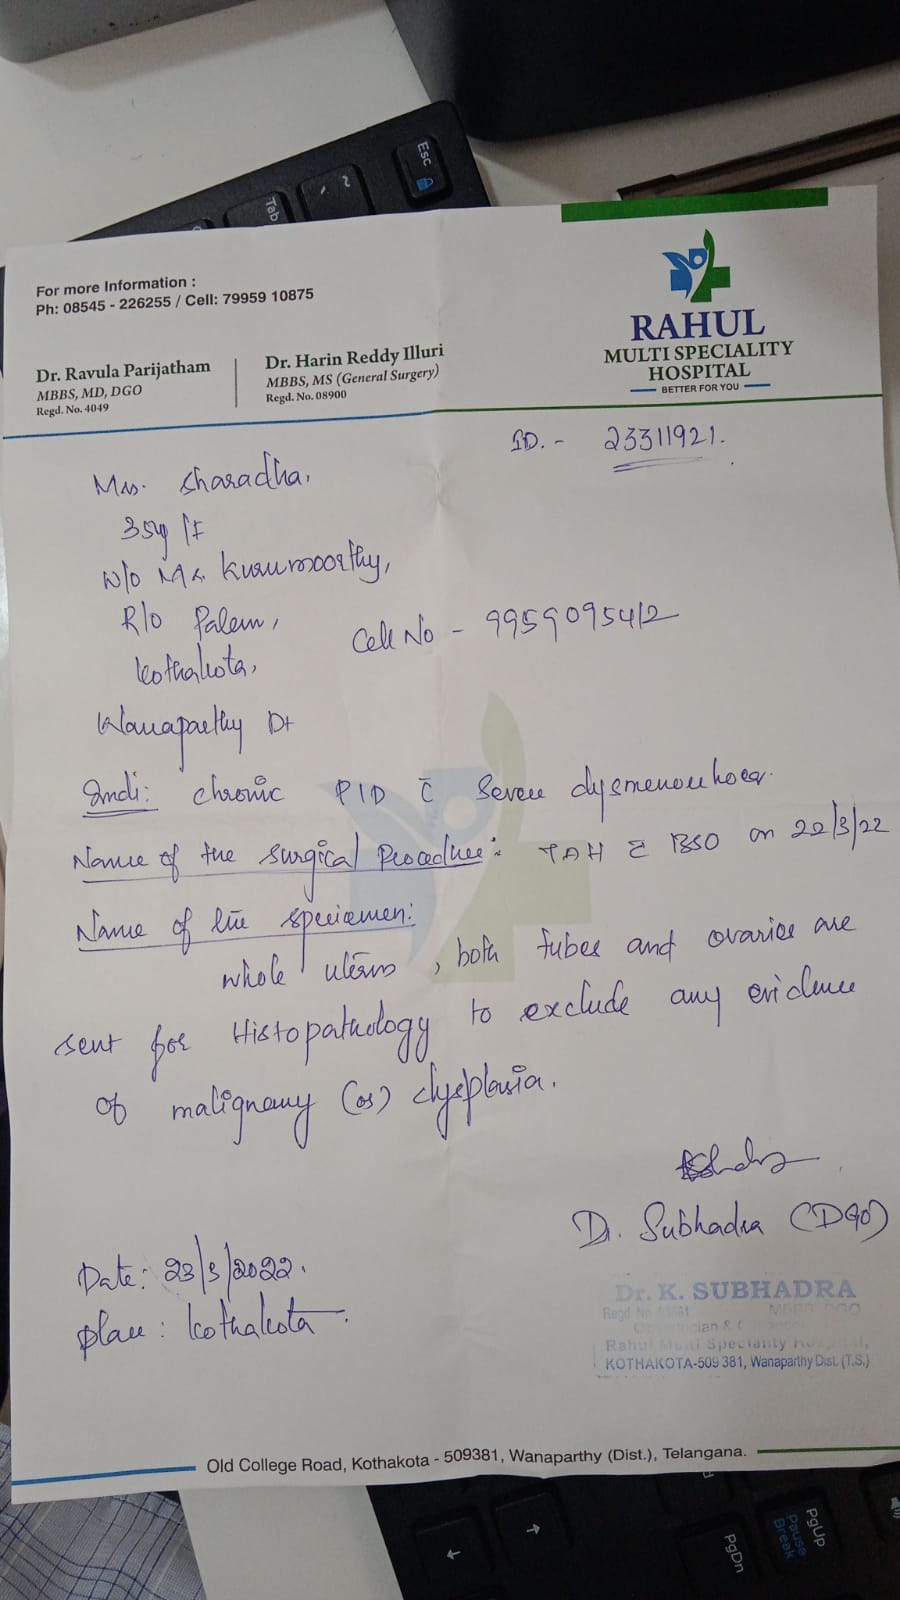 Esc
Tab
~
`
For more Information :
Ph: 08545 - 226255 / Cell: 79959 10875
Dr. Ravula Parijatham
MBBS, MD, DGO
Regd. No. 4049
Dr. Harin Reddy Illuri
MBBS, MS (General Surgery)
Regd. No. 08900
RAHUL
MULTI SPECIALITY
HOSPITAL
BETTER FOR YOU
ID. - 23311921.
Mrs. Sharadha,
35y/F
W/o Mr. Kurumoorthy,
R/o Palem,
Cell No - 9959095412
Kothakota,
Wanaparthy Dt
Indi: chronic PID c̄ Severe dysmenorrhoea.
Name of the Surgical Procedure: TAH c̄ BSO on 22/3/22
Name of the speciemen:
whole uterus, both tubes and ovaries are
sent for Histopathology to exclude any evidence
of malignancy (or) dysplasia.
Dr. Subhadra (DGO)
Date: 23/3/2022.
Place: Kothakota.
Dr. K. SUBHADRA
Regd. No.
MBBS DGO
Rahul Multi Specialty
KOTHAKOTA-509 381, Wanaparthy Dist. (T.S.)
Old College Road, Kothakota - 509381, Wanaparthy (Dist.), Telangana.
PgUp
Pause
Break
PgDn